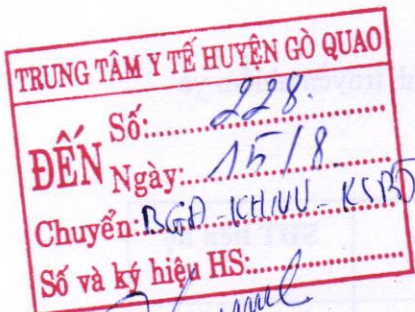 TRUNG TÂM Y TẾ HUYỆN GÒ QUAO
ĐẾN
Số: 228.
Ngày: 15/8
Chuyển: BGĐ - KHNV - KSBT
Số và ký hiệu HS: